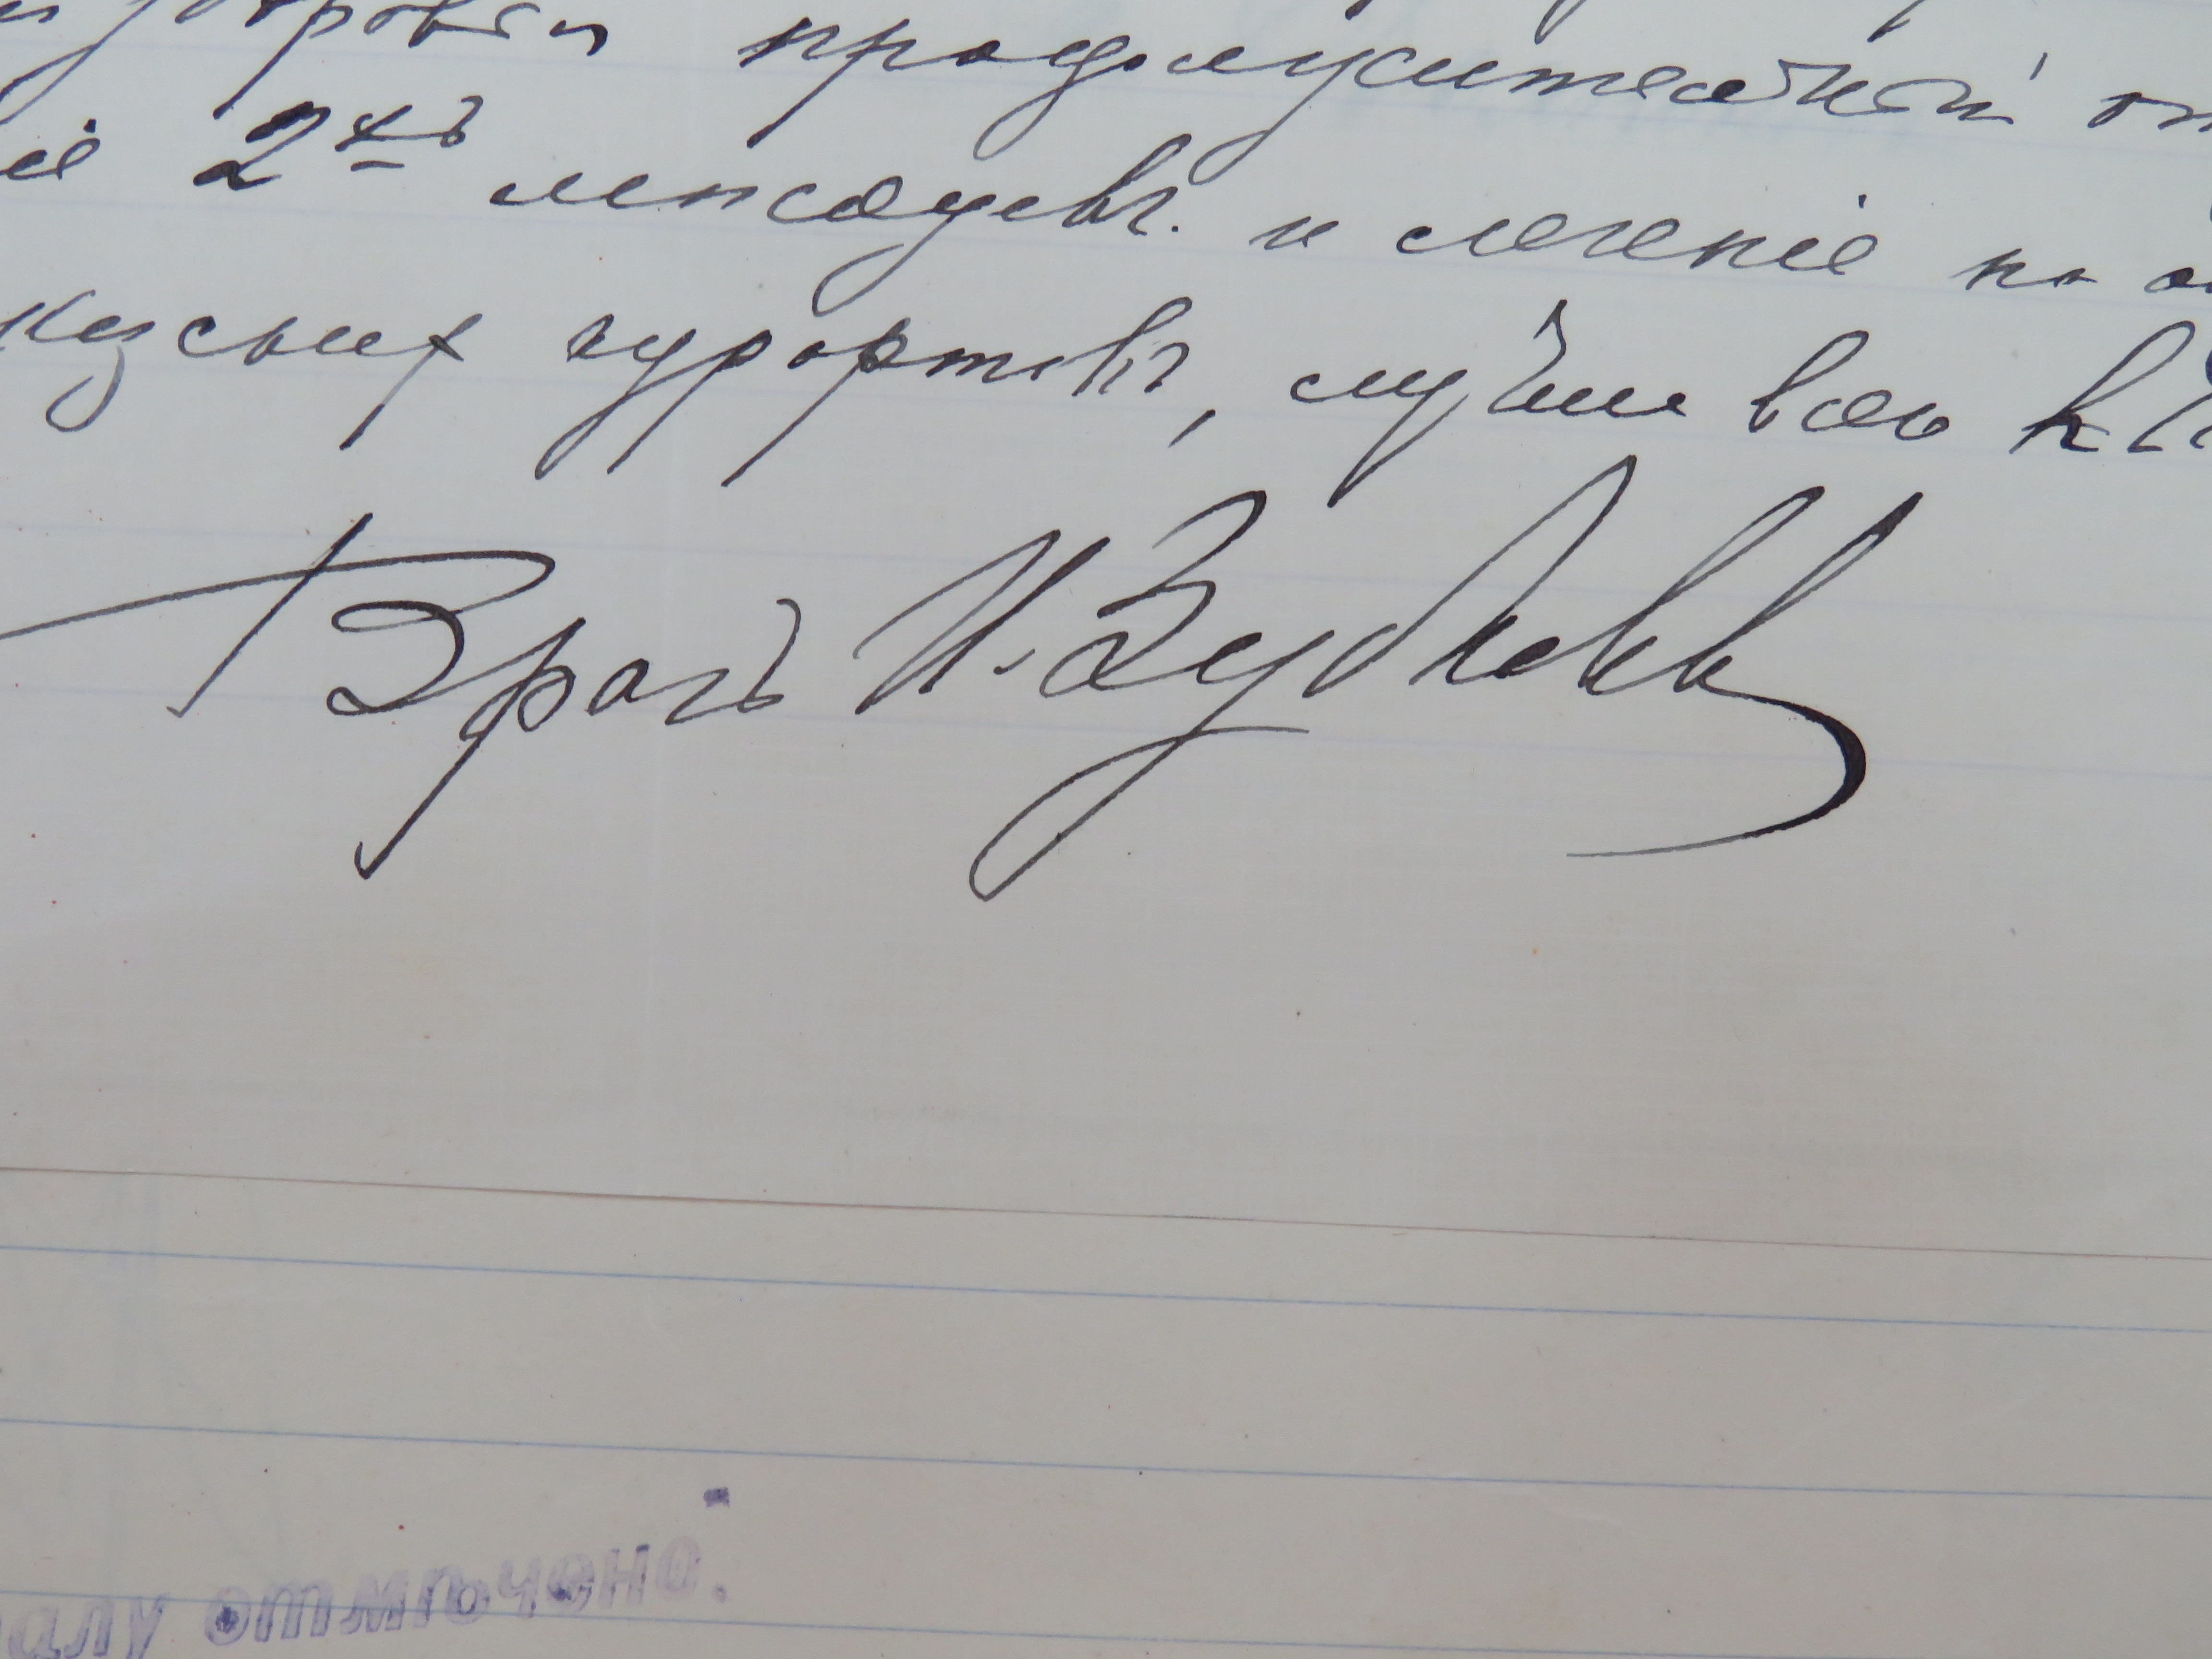 здоровья продолжительный от
ie 2хъ месяцевъ. и леченiе на о
кузских курортовъ, лучше всего
Врачъ И. Зубковъ
алу отмѣчено.